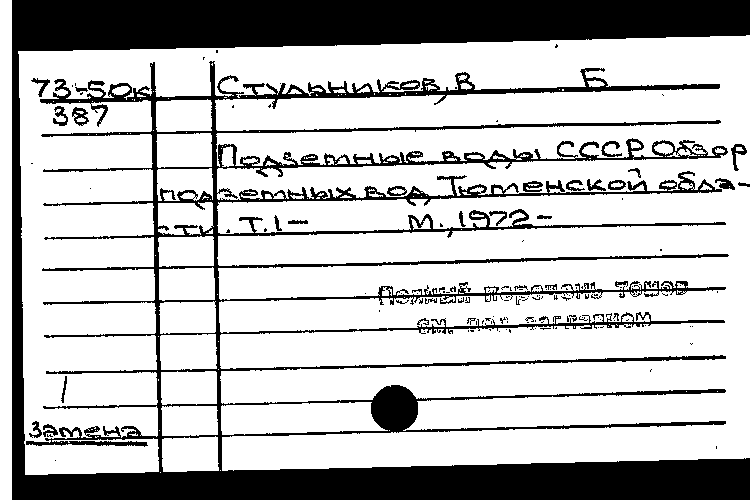 73-50к Стульников, В Б
387
Подземные воды СССР Обзор
подземных вод Тюменской обла-
сти. Т.1- М., 1972-
Полный перечень томов
см. под заглавием
Замена